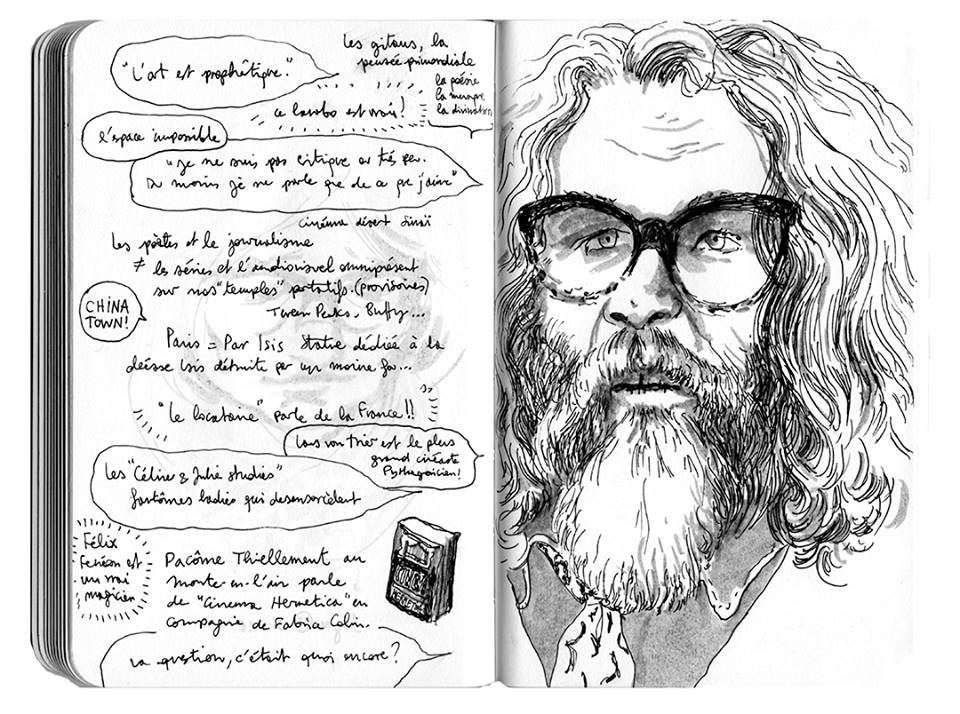 "L'art est prophétique."
Les gitans, la
pensée primordiale
la poésie
la musique
la divination
ce lavabo est vrai!
l'espace impossible
"Je ne suis pas critique ou très peu.
Du moins je ne parle que de ce que j'aime"
cinéma désert Sinaï
Les poètes et le journalisme
≠ les séries et l'audiovisuel omniprésent
sur nos "temples" portatifs. (provisoires)
Twean Peaks. Buffy...
CHINA
TOWN!
Paris = Par Isis Statue dédiée à la
déesse Isis détruite par un moine fou...
"Le locataire" parle de la France!!
Lars von trier est le plus
grand cinéaste
Pythagoricien!
Les "Céline & Julie studies"
fantômes ladies qui désensorcèlent
Félix
Fénéon est
un vrai
magicien
Pacôme Thiellement au
monte-en-l'air parle
de "Cinema Hermetica" en
compagnie de Fabrice Colin.
La question, c'était quoi encore?